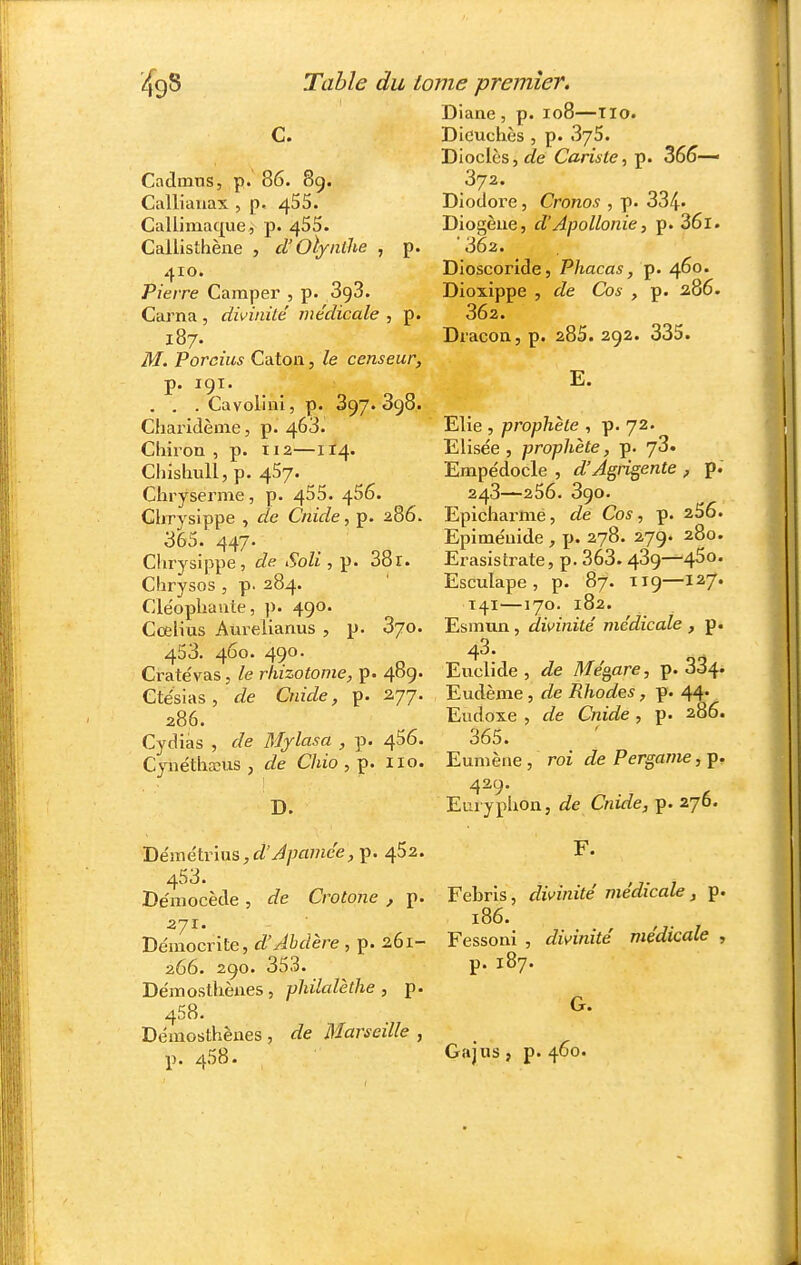 498 Table du tome premier.
C.
Cadmus, p. 86. 89.
Callianax , p. 455.
Callimaque, p. 455.
Callisthène , d'Olynthe , p.
410.
Pierre Camper , p. 393.
Carna, divinité médicale , p.
187.
M. Porcius Caton, le censeur,
p. 191.
. . . Cavolini, p. 397. 398.
Charidème, p. 463.
Chiron , p. 112—114.
Chishull, p. 457.
Chryserme, p. 455. 456.
Chrysippe , de Cnide, p. 286.
365. 447.
Chrysippe, de Soli , p. 381.
Chrysos , p. 284.
Cléophante, p. 490.
Cœlius Aurelianus , p. 370.
453. 460. 490.
Cratévas, le rhizotome, p. 489.
Ctésias , de Cnide, p. 277.
286.
Cydias , de Mylasa , p. 456.
Cynéthæus , de Chio , p. 110.
D.
Démétrius, d'Apamée, p. 452.
453.
Démocède , de Crotone , p.
271.
Démocrite, d'Abdère , p. 261-
266. 290. 353.
Démosthènes, philalèthe , p.
458.
Démosthènes , de Marseille ,
p. 458.
Diane , p. 108—110.
Dieuchès , p. 375.
Dioclès, de Cariste, p. 366—
372.
Diodore, Cronos , p. 334.
Diogène, d'Apollonie, p. 361.
362.
Dioscoride, Phacas, p. 460.
Dioxippe , de Cos , p. 286.
362.
Dracon, p. 285. 292. 335.
E.
Elie , prophète , p. 72.
Elisée , prophète, p. 73.
Empédocle , d'Agrigente , p.
243—256. 390.
Epicharme, de Cos, p. 256.
Epiménide , p. 278. 279. 280.
Erasistrate, p. 363. 439—450.
Esculape, p. 87. 119—127.
141—170. 182.
Esmun, divinité médicale , p.
43.
Euclide , de Mégare, p. 334.
Eudème, de Rhodes, p. 44.
Eudoxe , de Cnide , p. 286.
365.
Eumène , roi de Pergame, p.
429.
Euryphon, de Cnide, p. 276.
F.
Febris, divinité médicale, p.
186.
Fessoni , divinité médicale ,
p. 187.
G.
Gajus , p. 460.